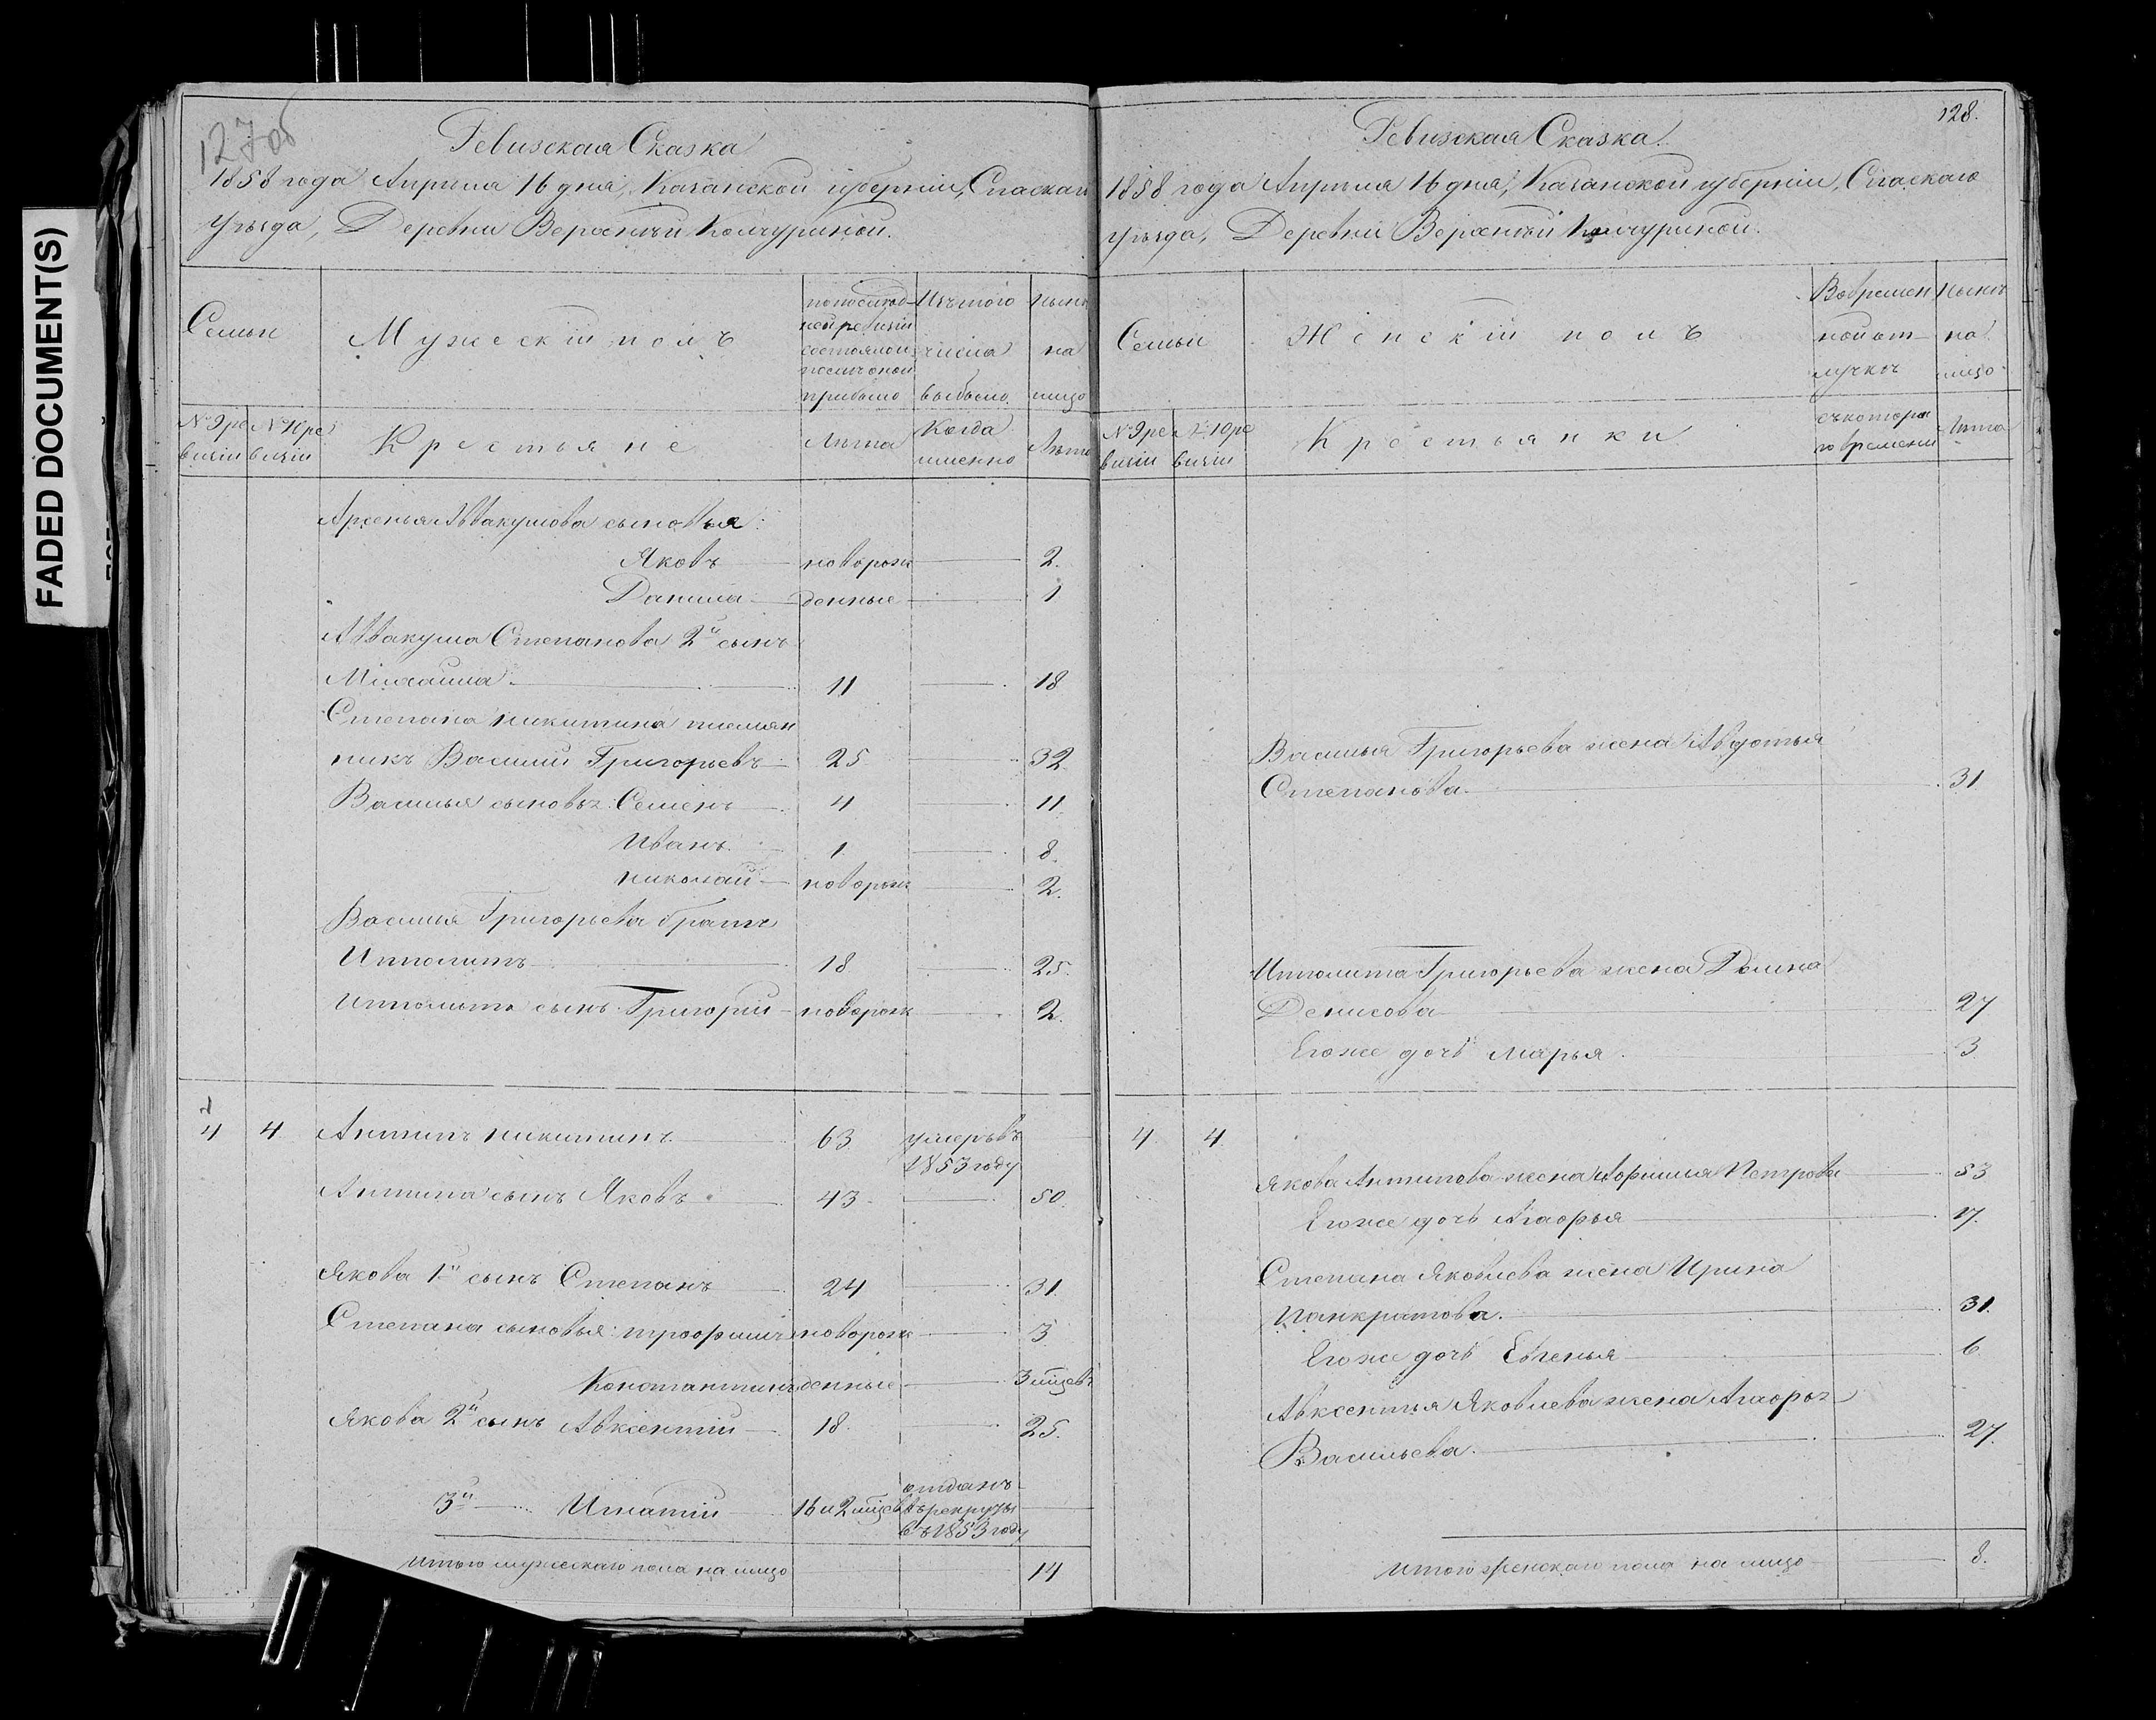 FADED DOCUMENT(S)
127об
Ревизская Сказка
1858 года Апрѣля 16 дня, Казанской губерніи, Спаскаго
уѣзда, Деревни Верхнѣй Кожуриной.
Семьи
Мужескій полъ
по послѣд-
ней ревизіи
состояло и
послѣ оной
прибыло
Изъ того
числа
выбыло
нынѣ
на
лицо
№ 9 ре
визіи
№ 10 ре
визіи
Крестьяне
Лѣта
Когда
именно
Лѣта
Арсенья Аввакумова сыновья:
Яковъ новорож 2.
Данила денные 1
Аввакума Степанова 2й сынъ
Михайла 11 18
Степана Никитина племян
никъ Василий Григорьевъ 25 32
Василья сыновья: Семенъ 4 11
Иванъ 1 8.
Николай новорож 2.
Василья Григорьева братъ
Ипполитъ 18 25.
Ипполита сынъ Григорий новорож 2.
2
4 4 Антипъ Никитинъ 63 умеръ въ
1853 году
Антипа сынъ Яковъ 43 50.
Якова 1й сынъ Степанъ 24 31.
Степана сыновья: Трофимъ новорож 3
Константинъ денные 3 мѣсев
Якова 2й сынъ Авксентій 18 25.
3й Игнатій 16 и 2 мѣсев отданъ
въ рекруты
въ 1853 году
Итого мужескаго пола на лицо 14
128.
Ревизская Сказка.
1858 года Апрѣля 16 дня, Казанской губерніи, Спаскаго
уѣзда, Деревни Верхнѣй Кожуриной.
Семьи
Женскій полъ
Вовремен
ной от-
лучкѣ
нынѣ
на
лицо
№ 9 ре
визіи
№ 10 ре
визіи
Крестьянки
съ котора
го времени
Лѣта
Василья Григорьева жена Авдотья
Степанова 31
Ипполита Григорьева жена Домна
Денисова 27
Его же дочь Марья 3
4. 4.
Якова Антипова жена Афимья Петрова 53
Его же дочь Агафья 17.
Степана Яковлева жена Ирина
Панкратова. 31.
Его же дочь Евгенья 6
Авксентья Яковлева жена Агафья
Васильева. 27.
Итого женскаго пола на лицо 8.